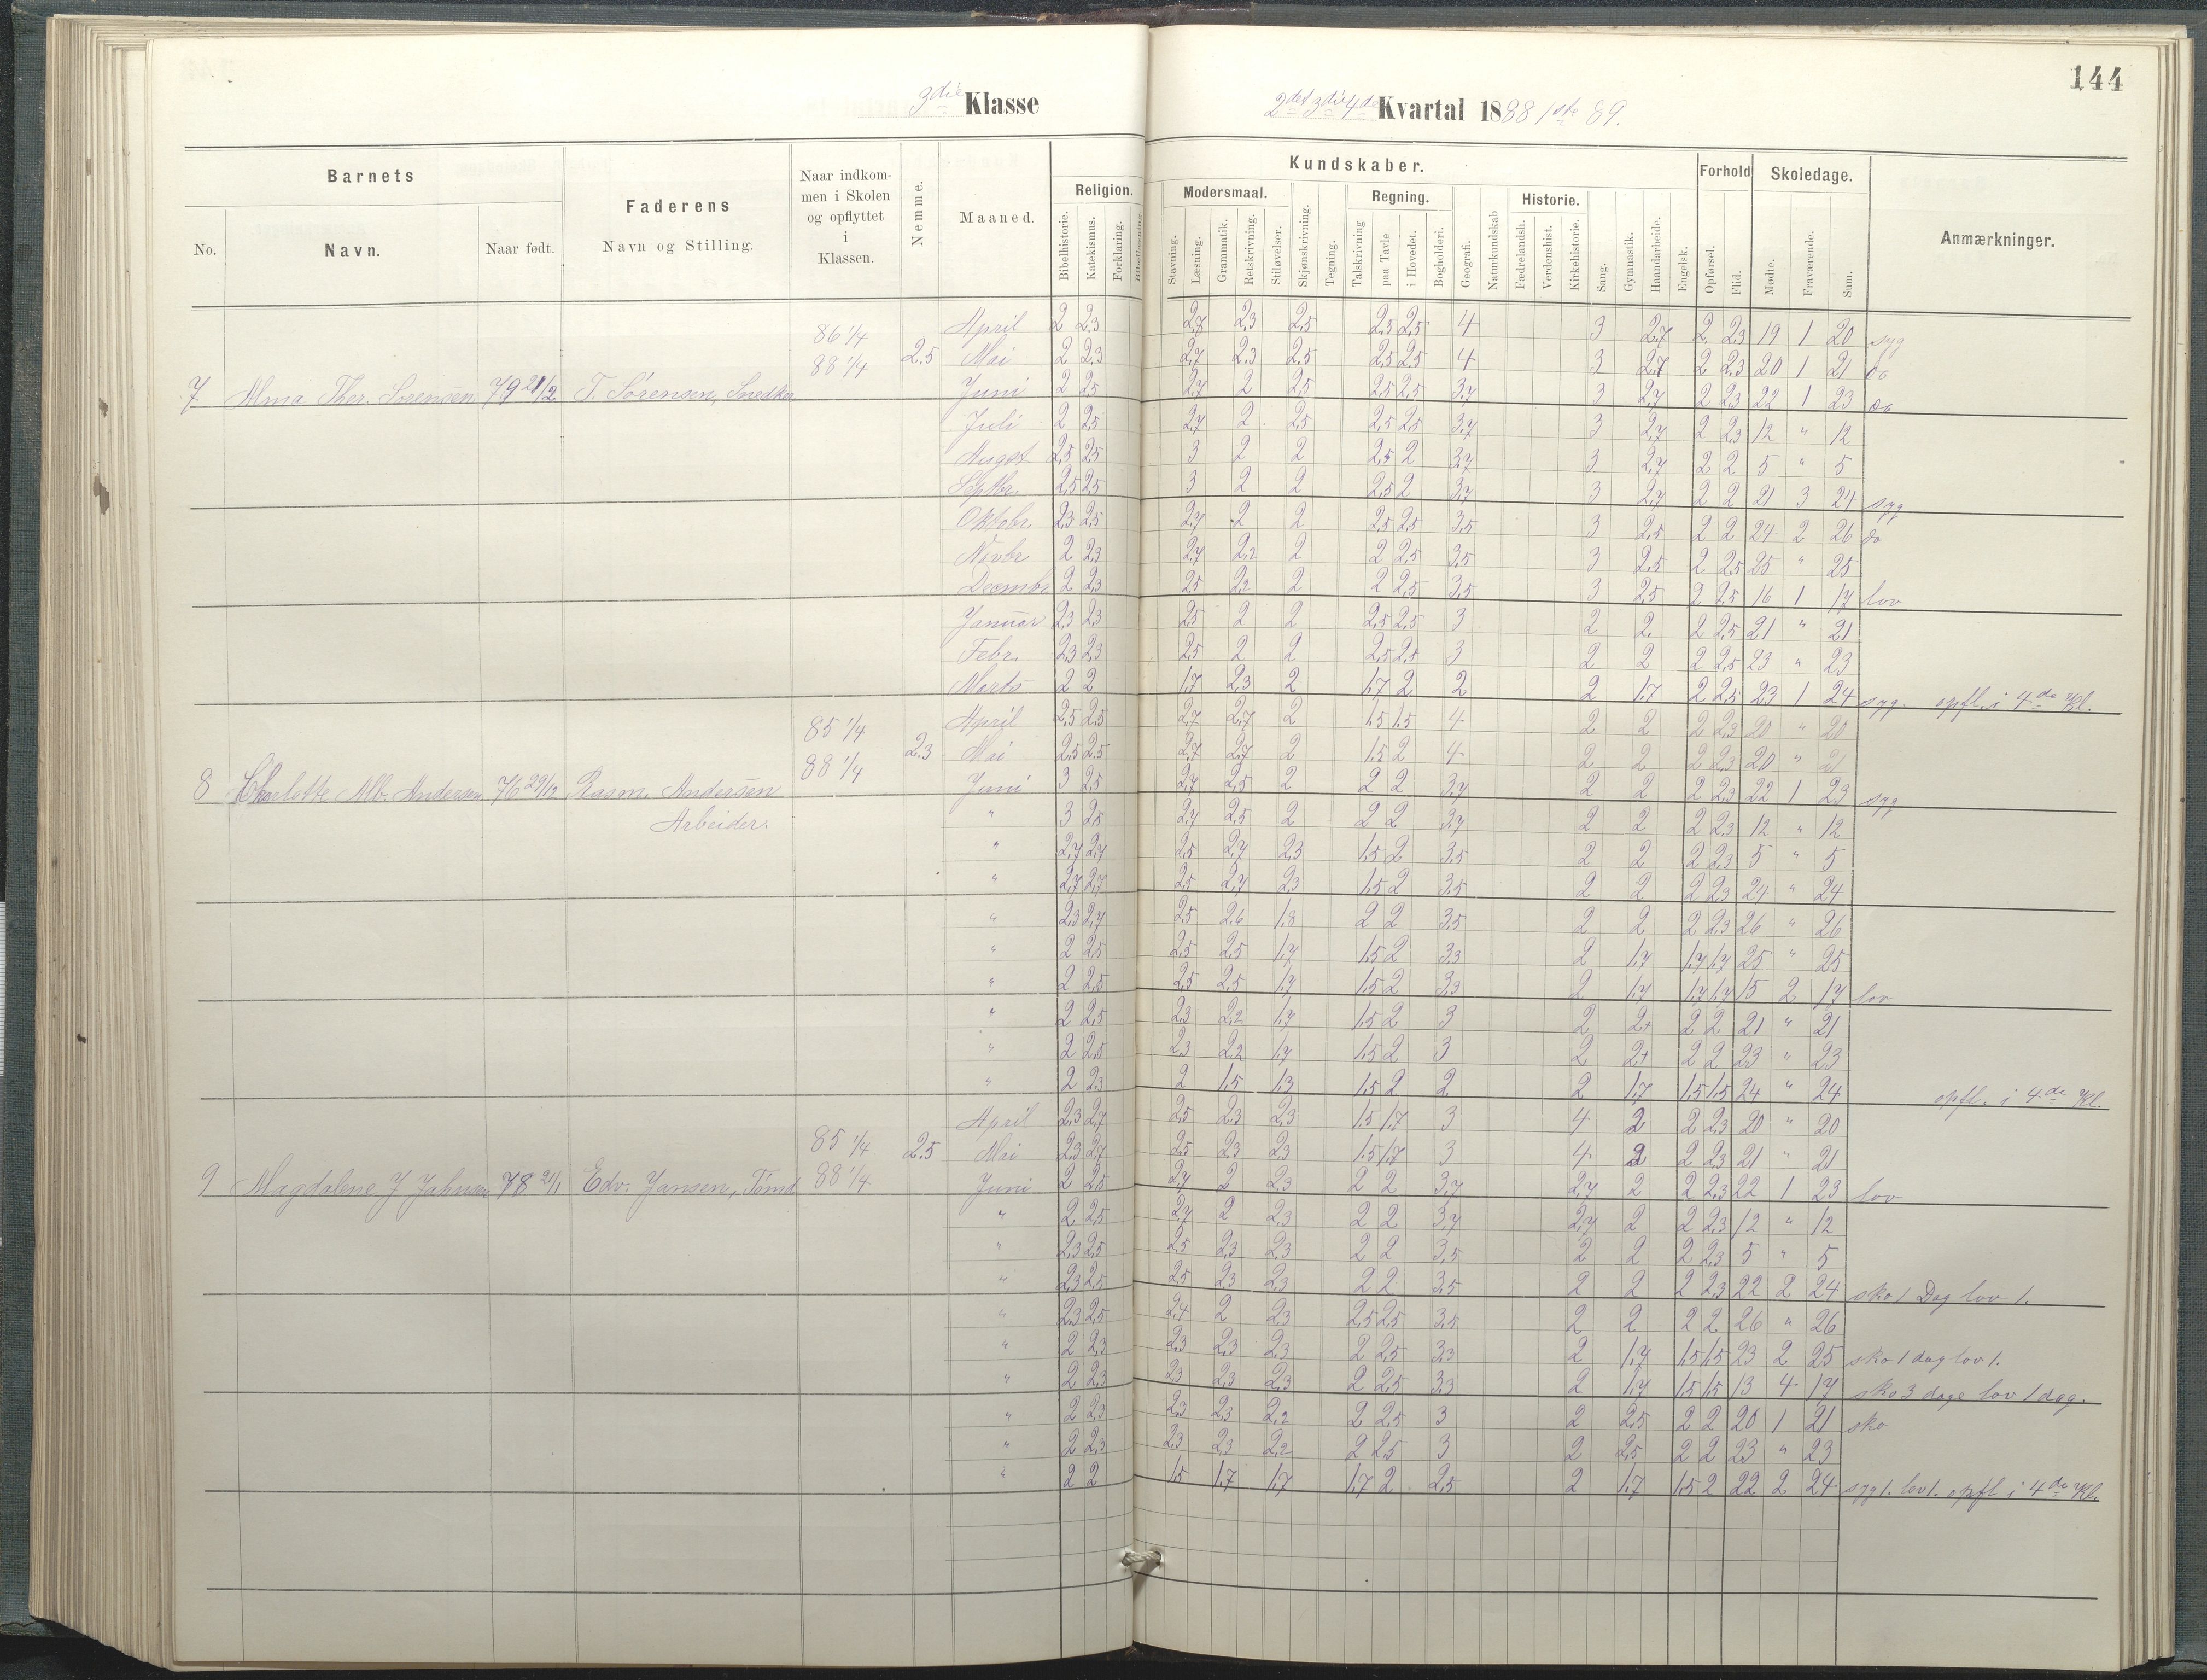 144
3die Klasse 2det 3die 4de Kvartal 1888 1ste 89.
Barnets
Faderens
Naar indkommen i Skolen og opflyttet i Klassen.
Nemme.
Maaned.
Religion.
Kundskaber.
Modersmaal.
Regning.
Historie.
Forhold
Skoledage.
Anmærkninger.
No. Navn. Naar født. Navn og Stilling.
Bibelhistorie. Katekismus. Forklaring. Bibellæsning. Stavning. Læsning. Grammatik. Retskrivning. Stiløvelser. Skjønskrivning. Tegning. Talskrivning paa Tavle i Hovedet. Bogholderi. Geografi. Naturkundskab Fædrelandsh. Verdenshist. Kirkehistorie. Sang. Gymnastik. Haandarbeide. Engelsk. Opførsel. Flid. Mødte. Fraværende. Sum.
86 1/4 April 2 2,3 2,7 2,3 2,5 2,5 2,5 4 3 2,7 2 2,3 19 1 20 syg
88 1/4 2.5 Mai 2 2,3 2,7 2,3 2,5 2,5 2,5 4 3 2,7 2 2,3 20 1 21 do
7 Alma Ther. Sørensen 79 21/2 T. Sørensen, Snedker Juni 2 2,5 2,7 2 2,5 2,5 2,5 3,7 3 2,7 2 2,3 22 1 23 do
Juli 2 2,5 2,7 2 2,5 2,5 2,5 3,7 3 2,7 2 2,3 12 " 12
August 2,5 2,5 3 2 2 2,5 2 3,7 3 2,7 2 2 5 " 5
Septbr. 2,5 2,5 3 2 2 2,5 2 3,7 3 2,7 2 2 21 3 24 syg
Oktobr. 2,3 2,5 2,7 2 2 2,5 2,5 3,5 3 2,5 2 2 24 2 26 do
Novbr 2 2,3 2,7 2,2 2 2 2,5 3,5 3 2,5 2 2,5 25 " 25
Decembr 2 2,3 2,5 2,2 2 2 2,5 3,5 3 2,5 2 2,5 16 1 17 lov
Januar 2,3 2,3 2,5 2 2 2,5 2,5 3 2 2 2 2,5 21 " 21
Febr. 2,3 2,3 2,5 2 2 2,5 2,5 3 2 2 2 2,5 23 " 23
Marts 2 2 1,7 2,3 2 1,7 2 2 2 1,7 2 2,5 23 1 24 syg. opfl. i 4de Kl.
85 1/4 April 2,5 2,5 2,7 2,7 2 1,5 1,5 4 2 2 2 2,3 20 " 20
88 1/4 2.3 Mai 2,5 2,5 2,7 2,7 2 1,5 2 4 2 2 2 2,3 20 " 21
8 Charlotte Alb. Andersen 76 29/12 Rasm. Andersen Juni 3 2,5 2,7 2,5 2 2 2 3,7 2 2 2 2,3 22 1 23 syg
Arbeider. " 3 2,5 2,7 2,5 2 2 2 3,7 2 2 2 2,3 12 " 12
" 2,7 2,7 2,5 2,7 2,3 1,5 2 3,5 2 2 2 2,3 5 " 5
" 2,7 2,7 2,5 2,7 2,3 1,5 2 3,5 2 2 2 2,3 24 " 24
" 2,3 2,7 2,5 2,6 1,8 2 2 3,5 2 2 2 2,3 26 " 26
" 2 2,5 2,5 2,5 1,7 1,5 2 3,3 2 1,7 1,7 1,7 25 " 25
" 2 2,5 2,5 2,5 1,7 1,5 2 3,3 2 1,7 1,7 1,7 15 2 17 lov
" 2 2,5 2,3 2,2 1,7 1,5 2 3 2 2+ 2 2 21 " 21
" 2 2,5 2,3 2,2 1,7 1,5 2 3 2 2+ 2 2 23 " 23
" 2 2,3 2 1,5 1,3 1,5 2 2 2 1,7 1,5 1,5 24 " 24 opfl. i 4de Kl.
April 2,3 2,7 2,5 2,3 2,3 1,5 1,7 3 4 2 2 2,3 20 " 20
85 1/4 2.5 Mai 2,3 2,7 2,5 2,3 2,3 1,5 1,7 3 4 2 2 2,3 21 " 21
9 Magdalene J Jahnsen 78 21/1 Edv. Jansen, Tømd 88 1/4 Juni 2 2,5 2,7 2 2,3 2 2 3,7 2,7 2 2 2,3 22 1 23 lov
" 2 2,5 2,7 2 2,3 2 2 3,7 2,7 2 2 2,3 12 " 12
" 2,3 2,5 2,5 2,3 2,3 2 2 3,5 2 2 2 2,3 5 " 5
" 2,3 2,5 2,5 2,3 2,3 2 2 3,5 2 2 2 2,3 22 2 24 sko 1 Dag lov 1.
" 2,3 2,5 2,4 2 2,3 2,5 2,5 3,5 2 2 2 2 26 " 26
" 2 2,3 2,3 2,3 2,3 2 2,5 3,3 2 1,7 1,5 1,5 23 2 25 sko 1 dag lov 1.
" 2 2,3 2,3 2,3 2,3 2 2,5 3,3 2 1,7 1,5 1,5 13 4 17 sko 3 dage lov 1 dag.
" 2 2,3 2,3 2,3 2,2 2 2,5 3 2 2,5 2 2 20 1 21 sko
" 2 2,3 2,3 2,3 2,2 2 2,5 3 2 2,5 2 2 23 " 23
" 2 2 1,5 1,7 1,7 1,7 2 2,5 2 1,7 1,5 2 22 2 24 syg 1. lov 1. opfl i 4de Kl.